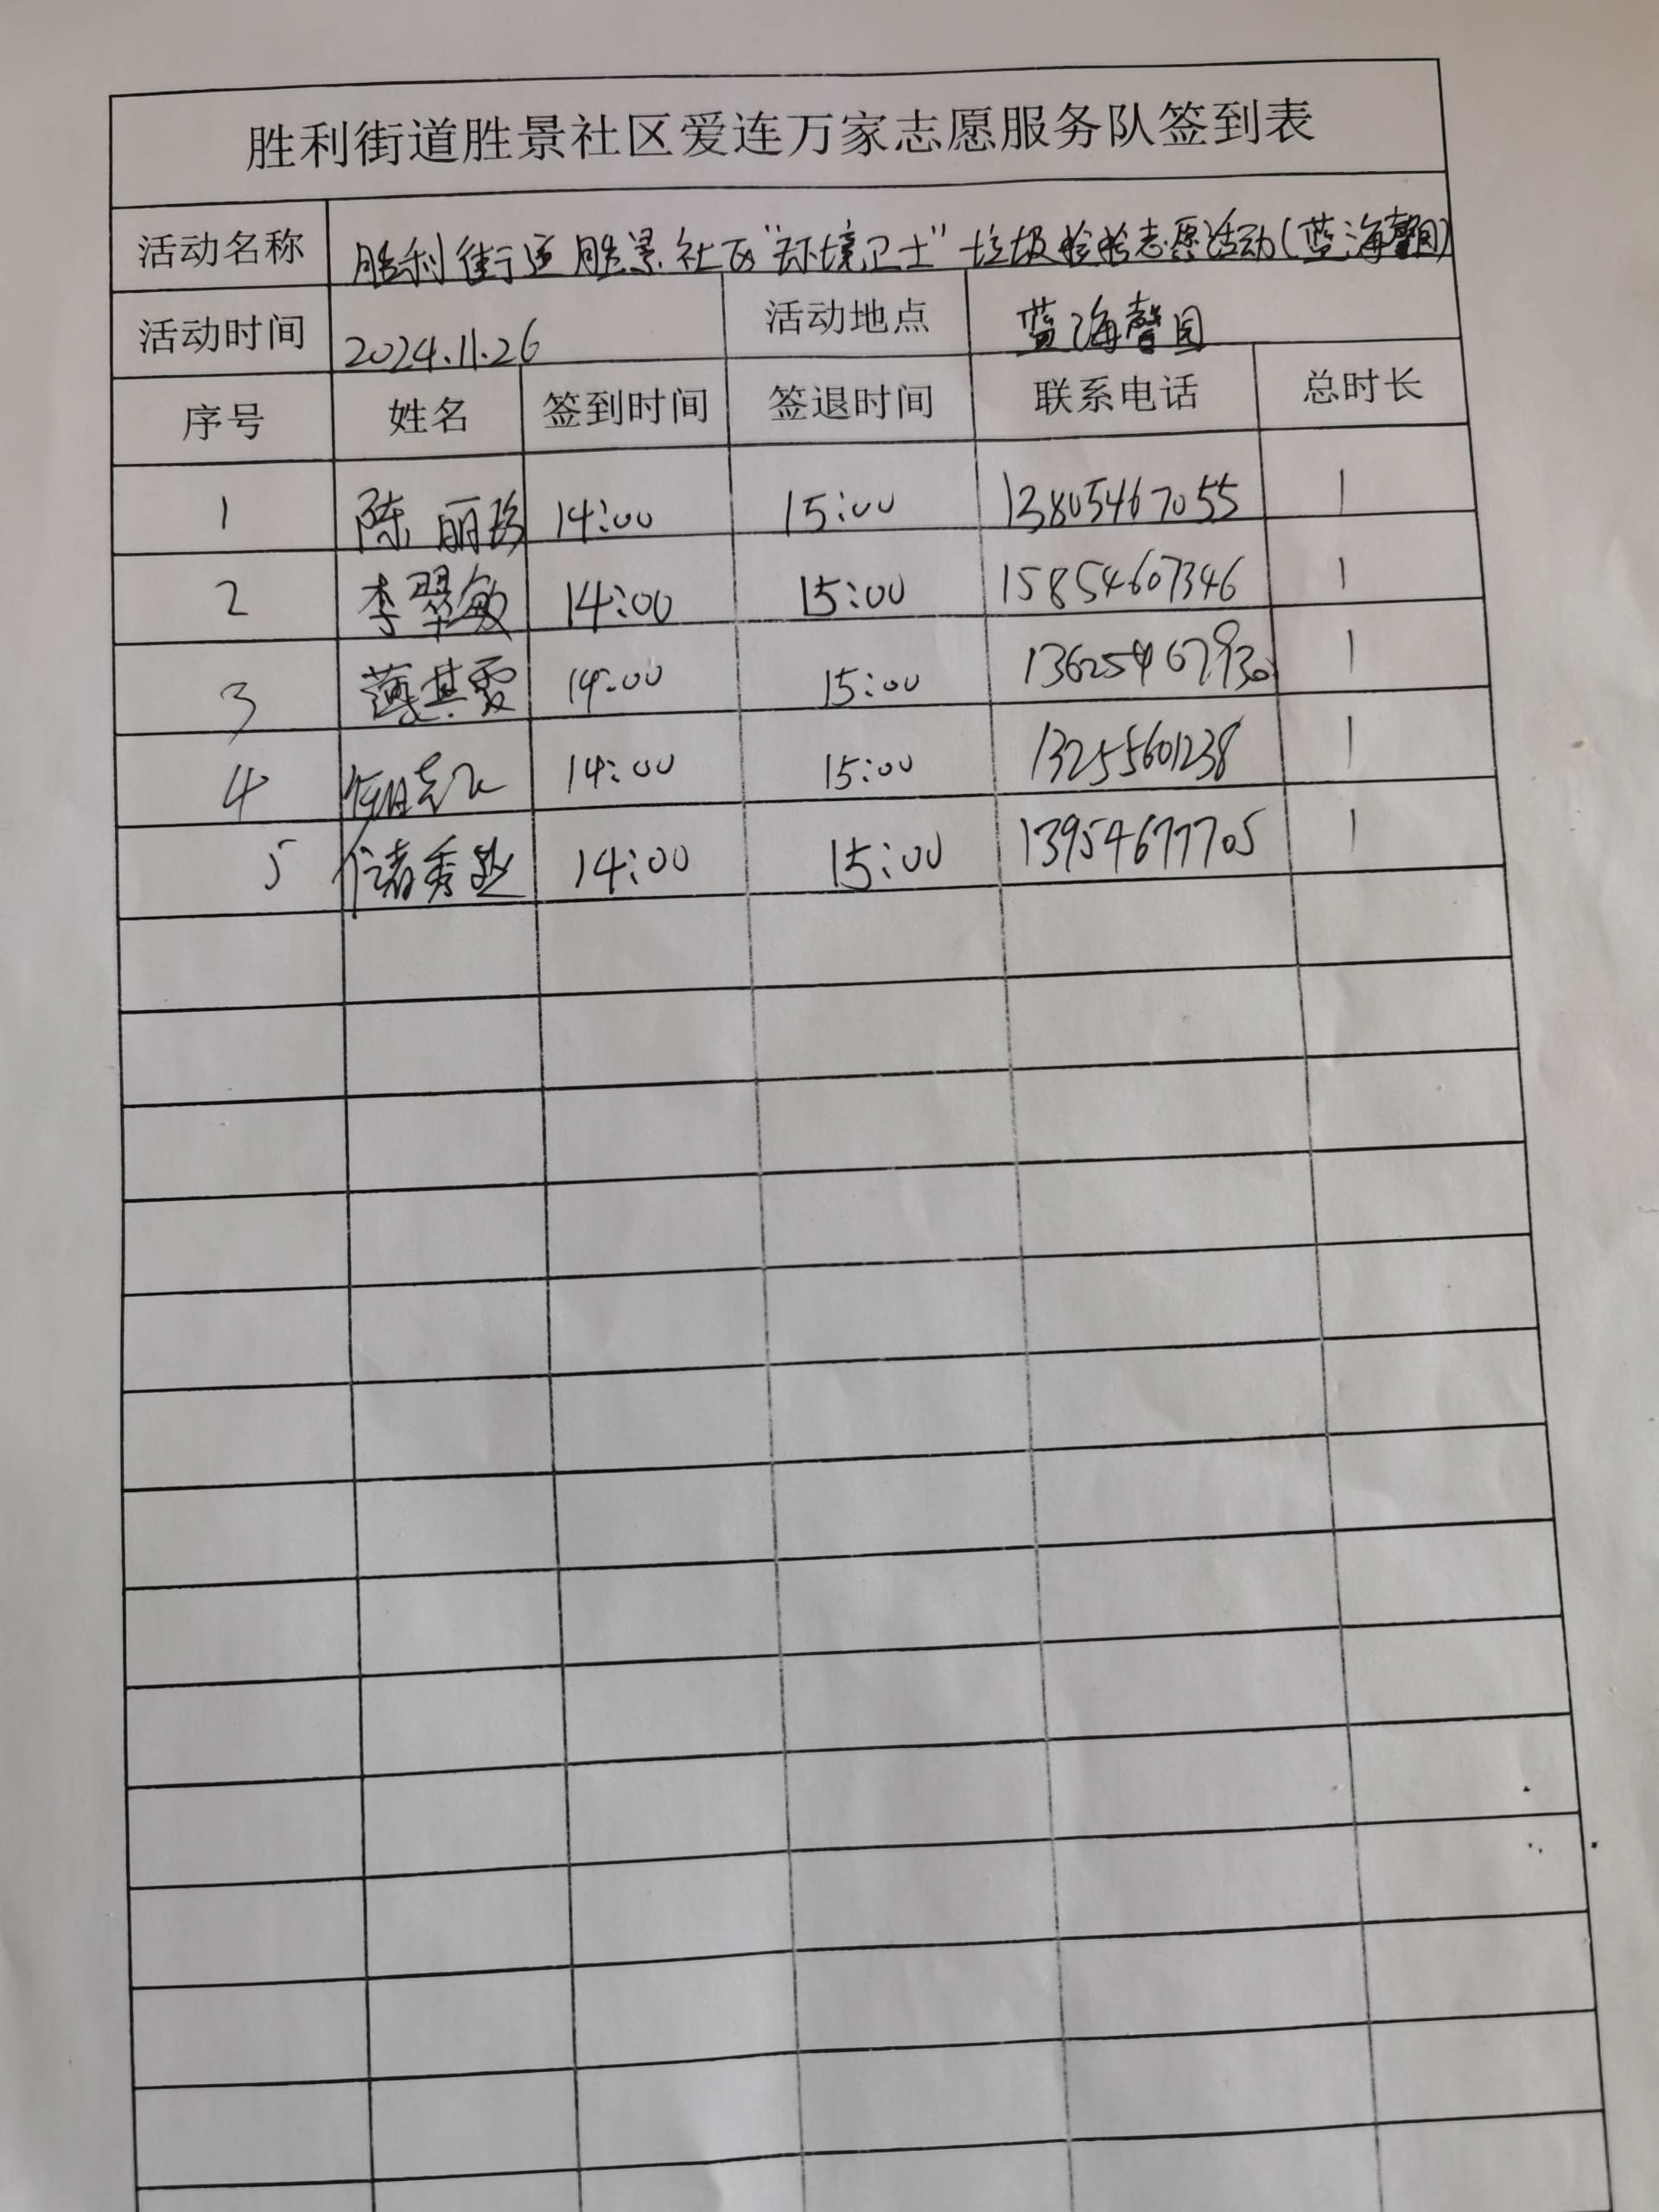 胜利街道胜景社区爱连万家志愿服务队签到表
活动名称 胜利街道胜景社区“环境卫士”垃圾捡拾志愿活动(蓝海馨园)
活动时间 2024.11.26 活动地点 蓝海馨园
序号 姓名 签到时间 签退时间 联系电话 总时长
1 陈丽珍 14:00 15:00 13805467055 1
2 李翠敏 14:00 15:00 15854607346 1
3 薄其霞 14:00 15:00 13625467930 1
4 14:00 15:00 13255601238 1
5 褚秀 14:00 15:00 13954677705 1